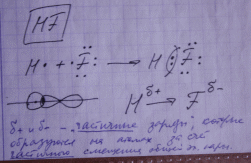 HF
H• + •F: → H:F:
H^δ+ F^δ-
δ+ и δ- – частичные заряды, которые
образуются на полюсах за счёт
частичного смещения общей эл. пары.